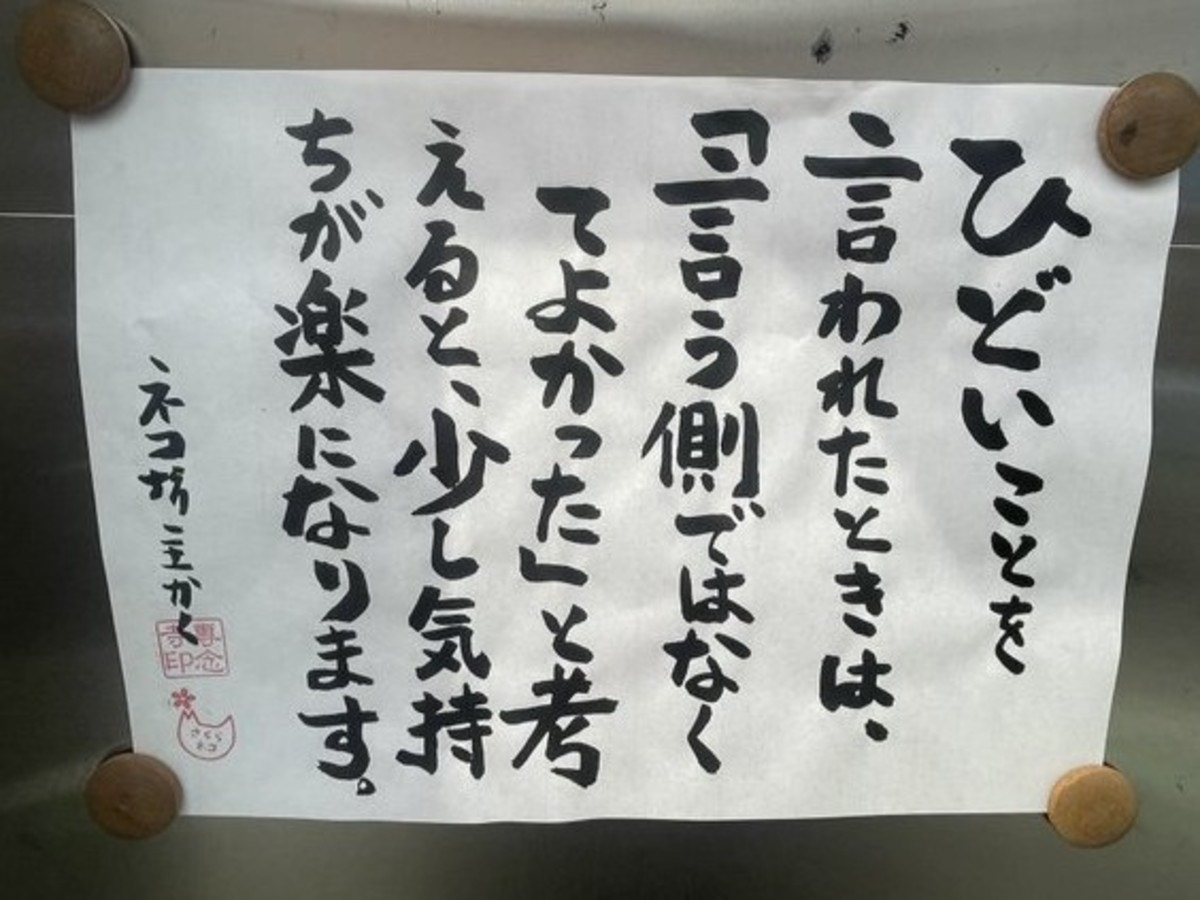 ひどいことを
言われたときは、
「言う側ではなく
てよかった」と考
えると、少し気持
ちが楽になります。
ネコ坊主かく
専念
寺印
さくら
ネコ